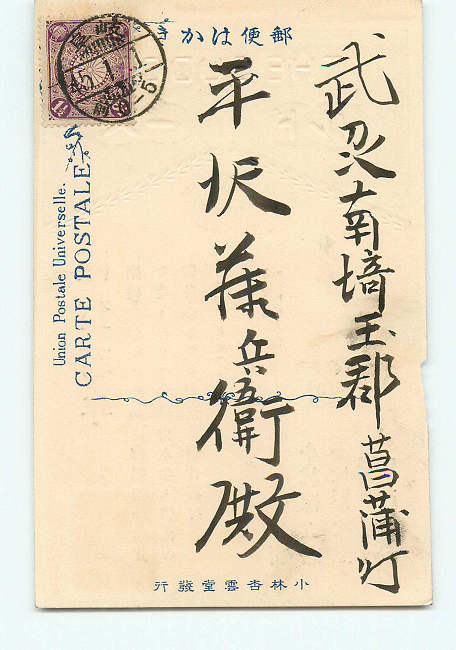 郵便はかき
武州南埼玉郡菖蒲町
平沢藤兵衛殿
Union Postale Universelle.
CARTE POSTALE
小林杏雲堂發行